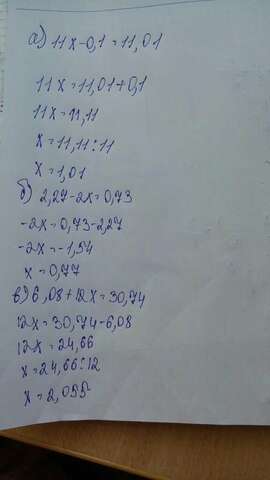 а) 11x-0,1=11,01
11x=11,01+0,1
11x=11,11
x=11,11:11
x=1,01
б) 2,27-2x=0,73
-2x=0,73-2,27
-2x=-1,54
x=0,77
в) 6,08+12x=30,74
12x=30,74-6,08
12x=24,66
x=24,66:12
x=2,055